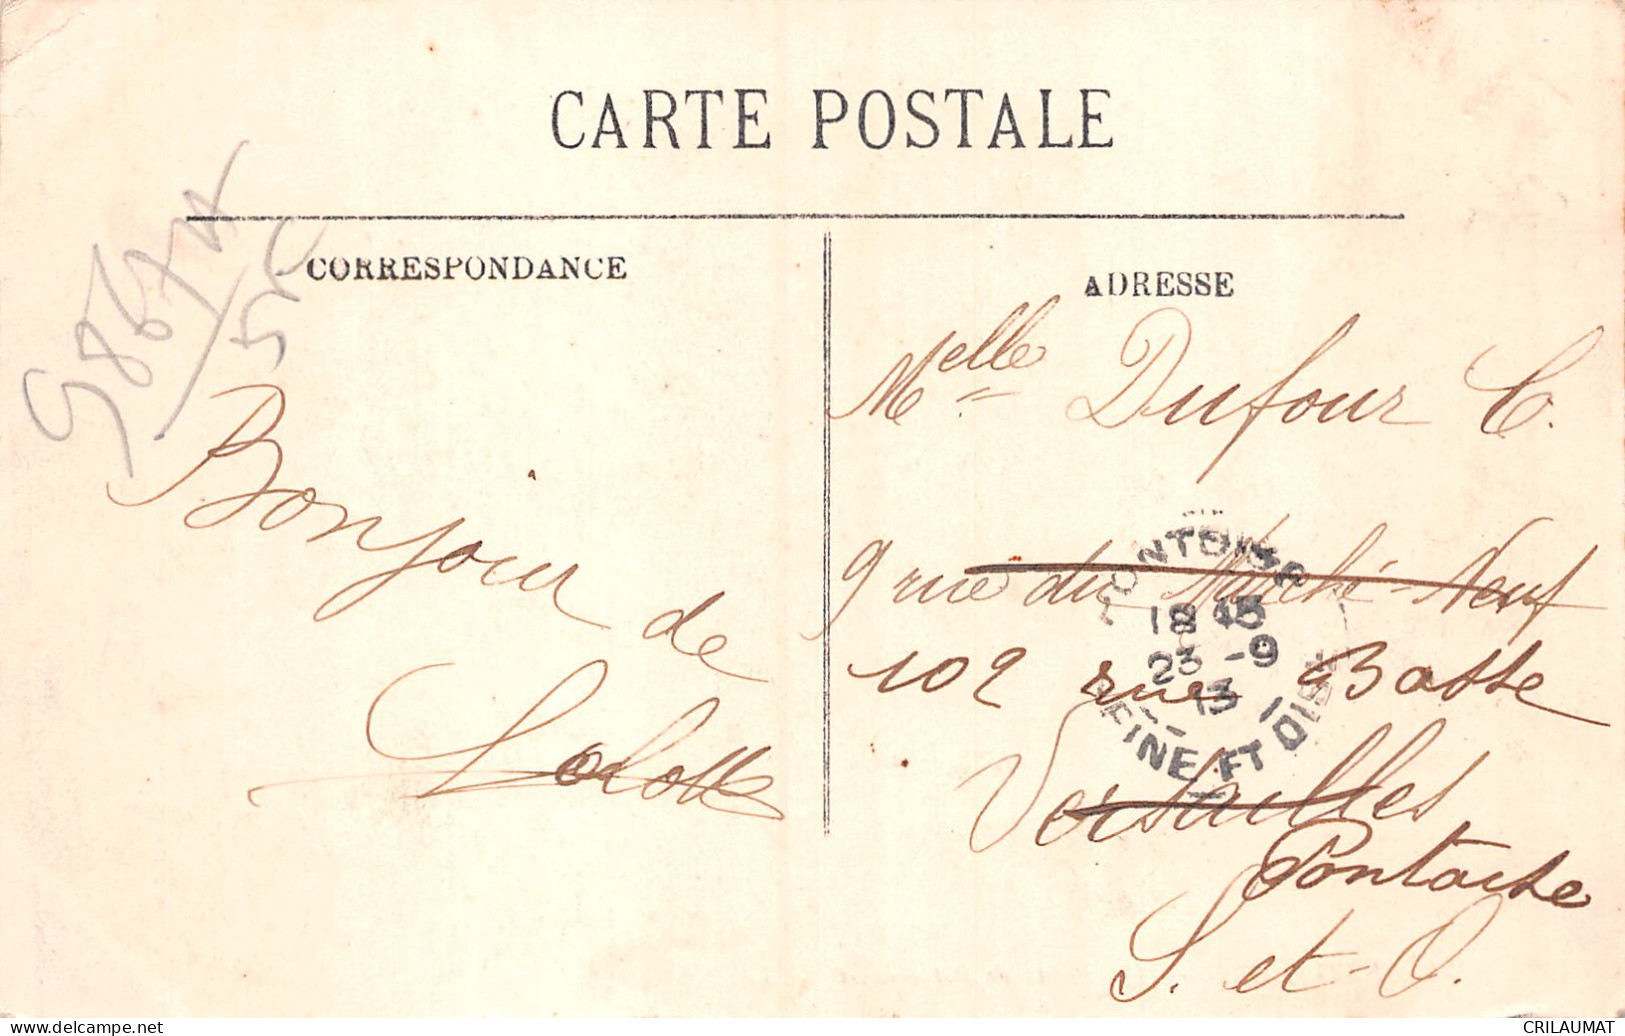 CARTE POSTALE
CORRESPONDANCE
ADRESSE
Bonjour de
Lolotte
Melle Dufour C.
9 rue du Marché-Neuf
102 rue Basse
Versailles
Pontoise
S. et-O.
PONTOISE
18 45
23 -9
13
SEINE ET OISE
www.delcampe.net
CRILAUMAT